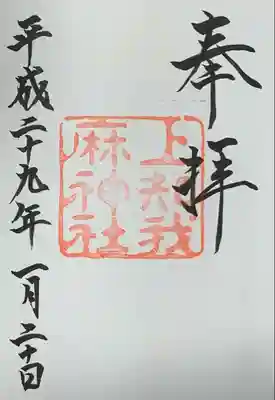 奉拝
上知我
麻神社
平成二十九年 一月二十日